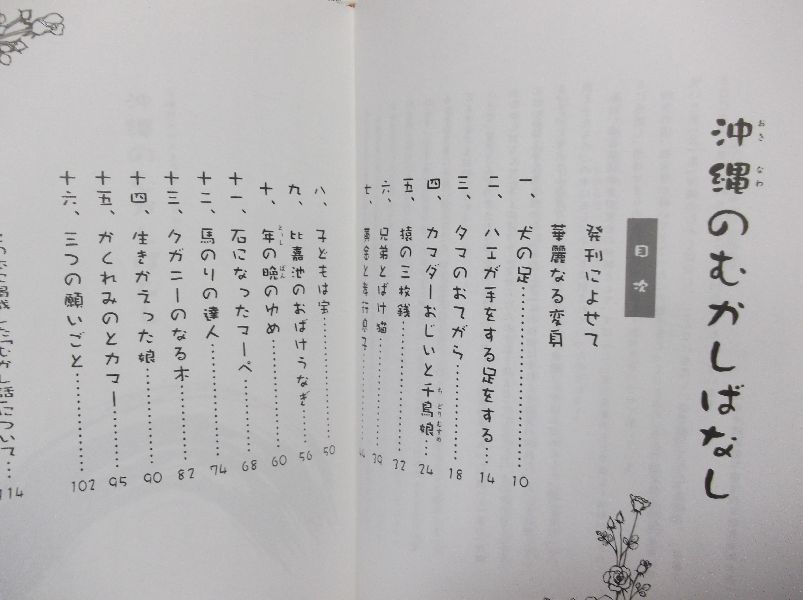 沖縄のむかしばなし
目次
発刊によせて
華麗なる変身
一、犬の足……………………10
二、ハエが手をする足をする…14
三、タマのおてがら……………18
四、カマダーおじいと千鳥娘…24
五、猿の三枚銭…………………32
六、兄弟とばけ猫………………39
七、黄金と孝行息子……………44
八、子どもは宝…………………50
九、比嘉池のおばけうなぎ……56
十、年の晩のゆめ………………60
十一、石になったマーペ………68
十二、馬のりの達人……………74
十三、クガニーのなる木………82
十四、生きかえった娘…………90
十五、かくれみのとカマー……95
十六、三つの願いごと…………102
むかし話について…114